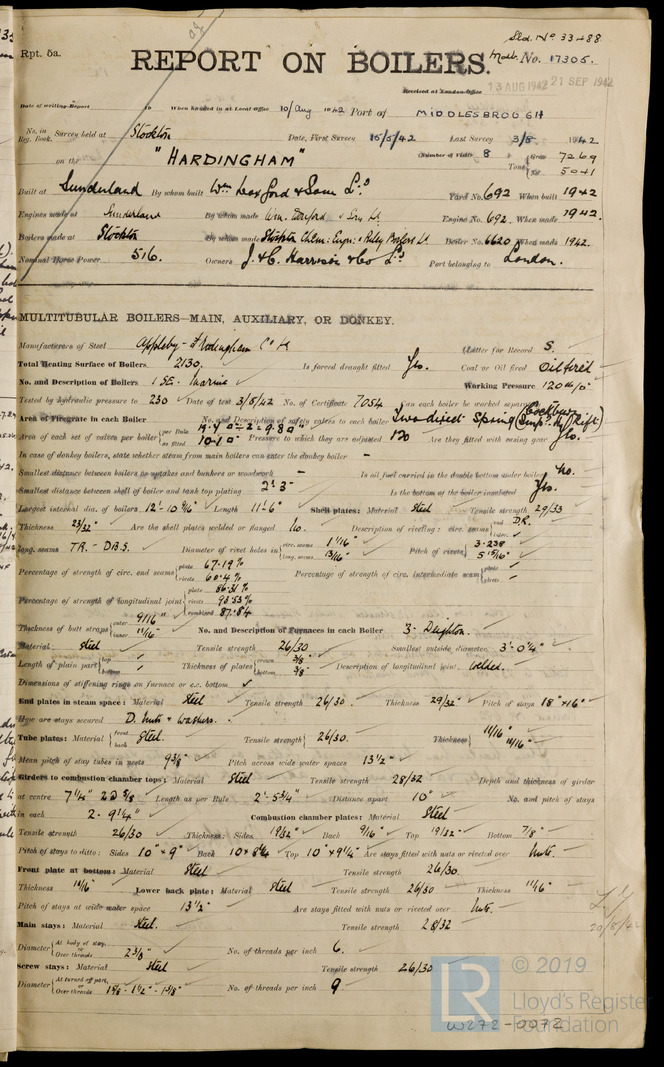 Sld. No 33488
Rpt. 5a.
REPORT ON BOILERS.
No. 17305.
Received at London Office
13 AUG 1942 21 SEP 1942
Date of writing Report 19 When handed in at Local Office 10/Aug 1942 Port of MIDDLESBROUGH
No. in Reg. Book. Survey held at Stockton Date, First Survey 15/5/42 Last Survey 3/8 1942
on the "HARDINGHAM" (Number of Visits 8 ) Tons Gross 7269 Net 5041
Built at Sunderland By whom built Wm Doxford & Sons Ld Yard No. 692 When built 1942
Engines made at Sunderland By whom made Wm. Doxford & Sons Ld Engine No. 692 When made 1942.
Boilers made at Stockton By whom made Stockton Chem. Engrs. & Riley Boilers Ld Boiler No. 6620 When made 1942.
Nominal Horse Power 516. Owners J. & C. Harrison & Co Ld Port belonging to London.
MULTITUBULAR BOILERS MAIN, AUXILIARY, OR DONKEY.
Manufacturers of Steel Appleby-Frodingham Co Ld (Letter for Record S.
Total Heating Surface of Boilers 2130. Is forced draught fitted Yes. Coal or Oil fired Oil fired
No. and Description of Boilers 1 SE. Marine Working Pressure 120 lb/□"
Tested by hydraulic pressure to 230 Date of test 3/8/42 No. of Certificate 7054 Can each boiler be worked separately
Area of Firegrate in each Boiler No. and Description of safety valves to each boiler Two direct Spring (Cockburn Imp. Hy Lift)
Area of each set of valves per boiler per Rule as fitted 10·10" Pressure to which they are adjusted 120 Are they fitted with easing gear Yes.
In case of donkey boilers, state whether steam from main boilers can enter the donkey boiler -
Smallest distance between boilers or uptakes and bunkers or woodwork - Is oil fuel carried in the double bottom under boilers No.
Smallest distance between shell of boiler and tank top plating 2'-3" Is the bottom of the boiler insulated Yes.
Largest internal dia. of boilers 12'-10 9/16" Length 11'-6" Shell plates: Material Steel Tensile strength 29/33
Thickness 23/32" Are the shell plates welded or flanged No. Description of riveting: circ. seams end D.R. inter.
long. seams T.R. - D.B.S. Diameter of rivet holes in circ. seams 1 1/16" long. seams 13/16" Pitch of rivets 3·238 5 15/16"
Percentage of strength of circ. end seams plate 67·19 % rivets 60·4 % Percentage of strength of circ. intermediate seam plate rivets
Percentage of strength of longitudinal joint plate 86·31 % rivets 93·53 % combined 87·84
Thickness of butt straps outer 9/16" inner 11/16" No. and Description of Furnaces in each Boiler 3- Deighton.
Material Steel Tensile strength 26/30 Smallest outside diameter 3'-0 1/4"
Length of plain part top bottom Thickness of plates crown 3/8 bottom 3/8 Description of longitudinal joint Welded.
Dimensions of stiffening rings on furnace or c.c. bottom
End plates in steam space: Material Steel Tensile strength 26/30 Thickness 29/32" Pitch of stays 18"×16"
How are stays secured D. Nuts & Washers.
Tube plates: Material front back Steel. Tensile strength 26/30. Thickness 11/16" 11/16"
Mean pitch of stay tubes in nests 9 3/8" Pitch across wide water spaces 13 1/2"
Girders to combustion chamber tops: Material Steel Tensile strength 28/32 Depth and thickness of girder
at centre 7 1/4" 2 @ 5/8 Length as per Rule 2'-5 3/4" Distance apart 10" No. and pitch of stays
in each 2- 9 1/4" Combustion chamber plates: Material Steel
Tensile strength 26/30 Thickness: Sides 19/32" Back 9/16" Top 19/32" Bottom 7/8"
Pitch of stays to ditto: Sides 10" × 9" Back 10 × 8 3/4 Top 10" × 9 1/4" Are stays fitted with nuts or riveted over Nuts.
Front plate at bottom: Material Steel Tensile strength 26/30.
Thickness 11/16" Lower back plate: Material Steel Tensile strength 26/30 Thickness 11/16"
Pitch of stays at wide water space 13 1/2" Are stays fitted with nuts or riveted over Nuts.
Main stays: Material Steel. Tensile strength 28/32
Diameter At body of stay, or Over threads 2 3/8" No. of threads per inch 6.
Screw stays: Material Steel Tensile strength 26/30
Diameter At turned off part, or Over threads 1 5/8 - 1 1/2" - 1 3/8" No. of threads per inch 9
20/8/42
© 2019
LR
Lloyd's Register
Foundation
W272-0072